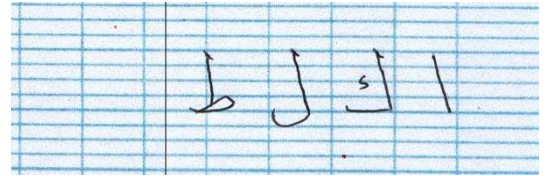 ا ك ل ط